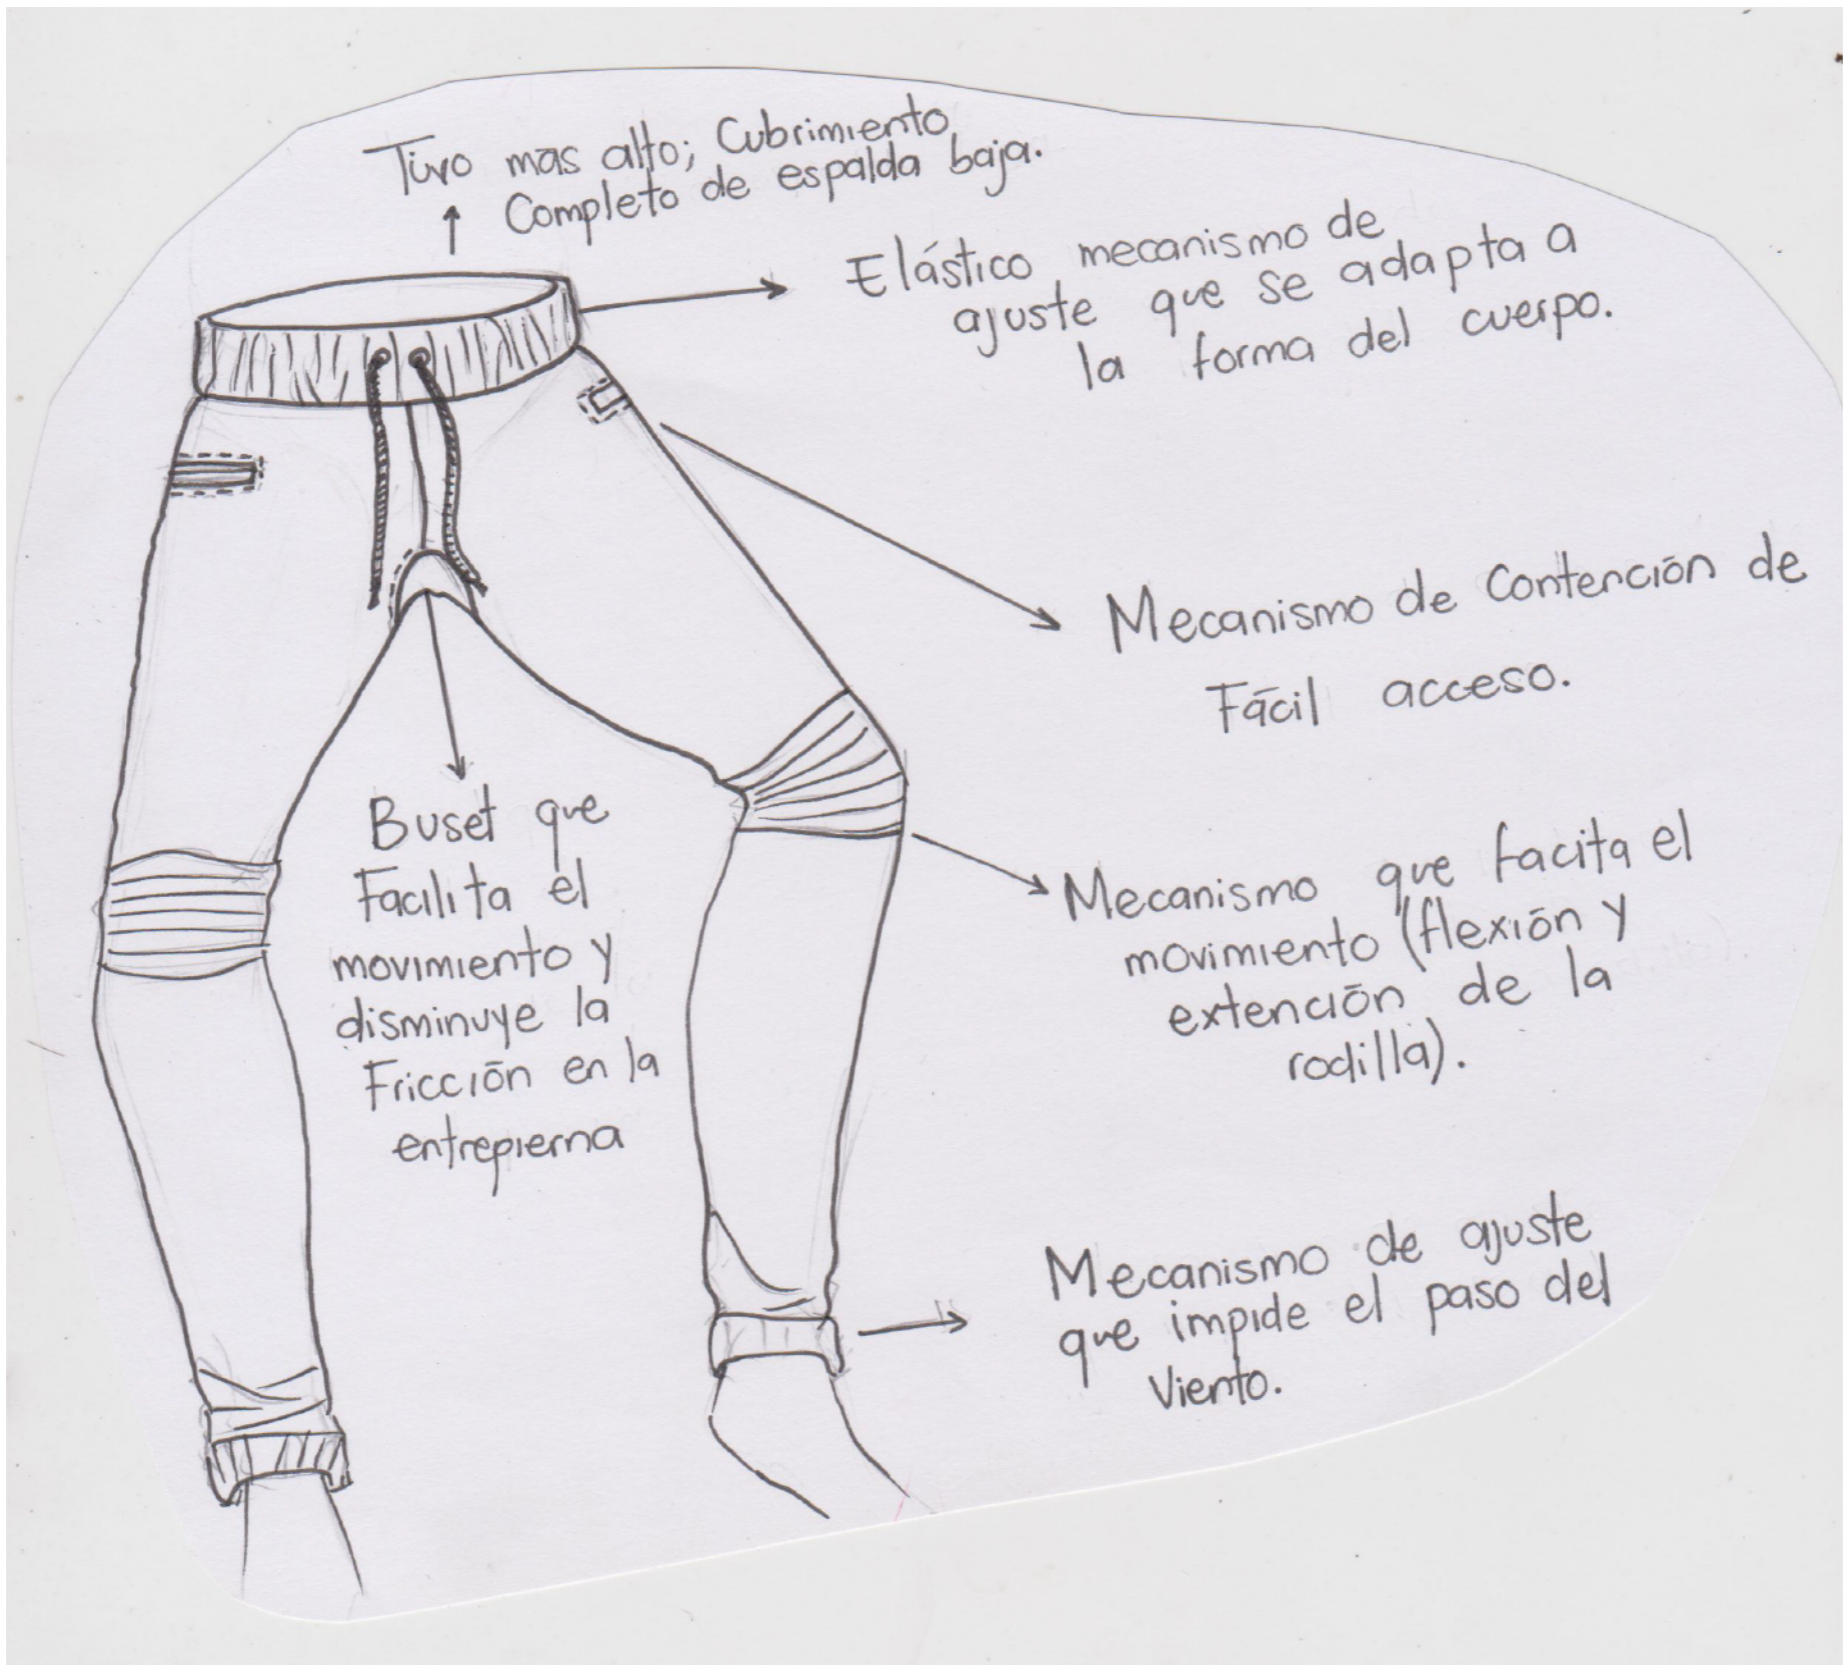 Tiro mas alto; Cubrimiento
Completo de espalda baja.
Elástico mecanismo de
ajuste que se adapta a
la forma del cuerpo.
Mecanismo de Contención de
Fácil acceso.
Buset que
Facilita el
movimiento y
disminuye la
Fricción en la
entrepierna
Mecanismo que facita el
movimiento (flexión y
extención de la
rodilla).
Mecanismo de ajuste
que impide el paso del
viento.